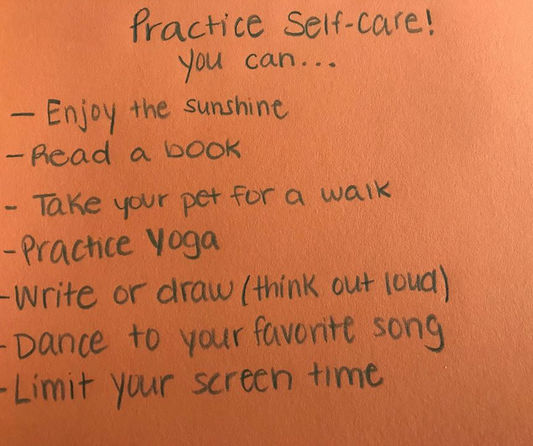 Practice Self-care!
you can...
- Enjoy the sunshine
- Read a book
- Take your pet for a walk
- Practice Yoga
- Write or draw (think out loud)
- Dance to your favorite song
- Limit your screen time